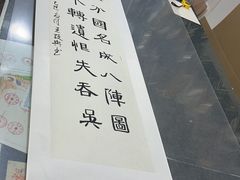 分國名成八陣圖
不轉遺恨失吞吳